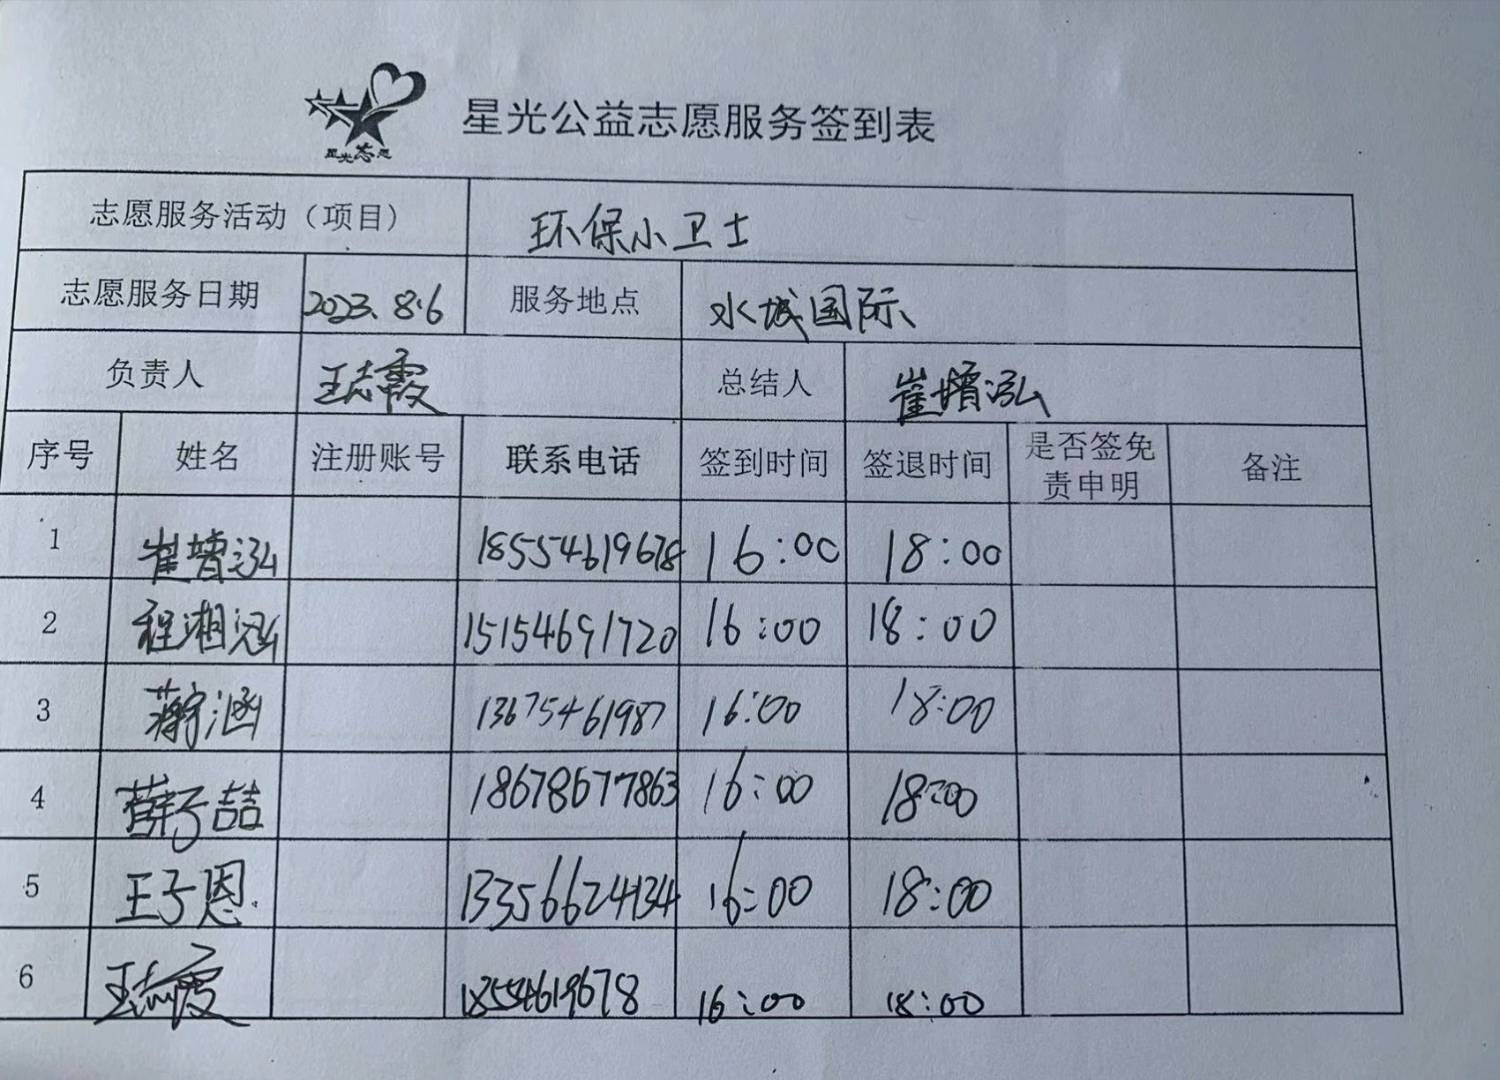 星光志愿
星光公益志愿服务签到表
志愿服务活动（项目） 环保小卫士
志愿服务日期 2023.8.6 服务地点 水城国际
负责人 王志霞 总结人 崔增泓
序号 姓名 注册账号 联系电话 签到时间 签退时间 是否签免责申明 备注
1 崔增泓 18554619678 16:00 18:00
2 程湘涵 15154691720 16:00 18:00
3 蒋宇涵 13675461987 16:00 18:00
4 薛子喆 18678677863 16:00 18:00
5 王子恩 13356624134 16:00 18:00
6 王志霞 18554619678 16:00 18:00